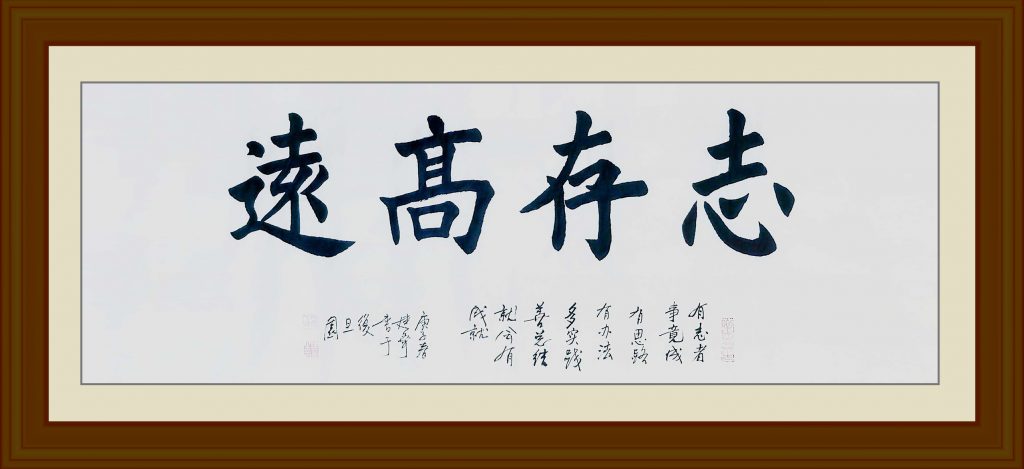 志存髙遠
有志者
事竟成
有思路
有办法
多实践
善总结
就会有
成就
庚子春
书于
復
旦
園